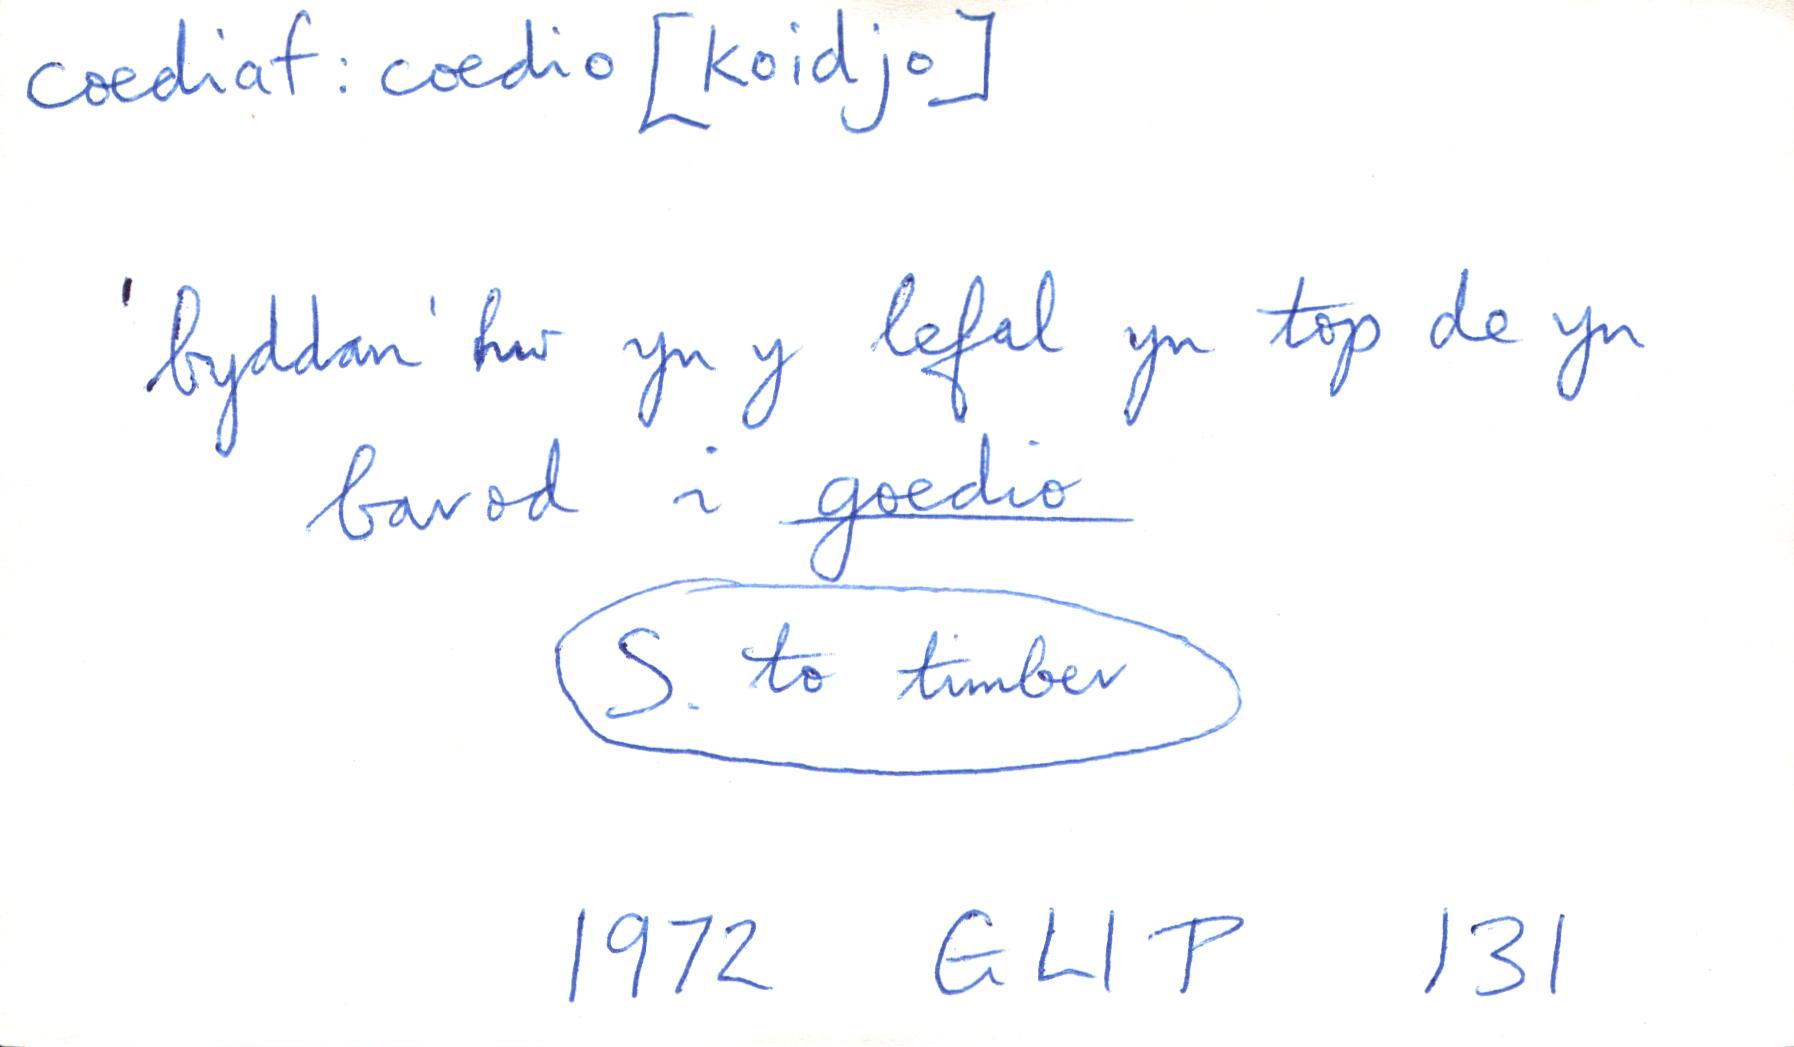 coediaf: coedio [koidjo]
'byddan' hw yn y lefal yn top de yn
barod i goedio
S. to timber
1972 GLIP 131